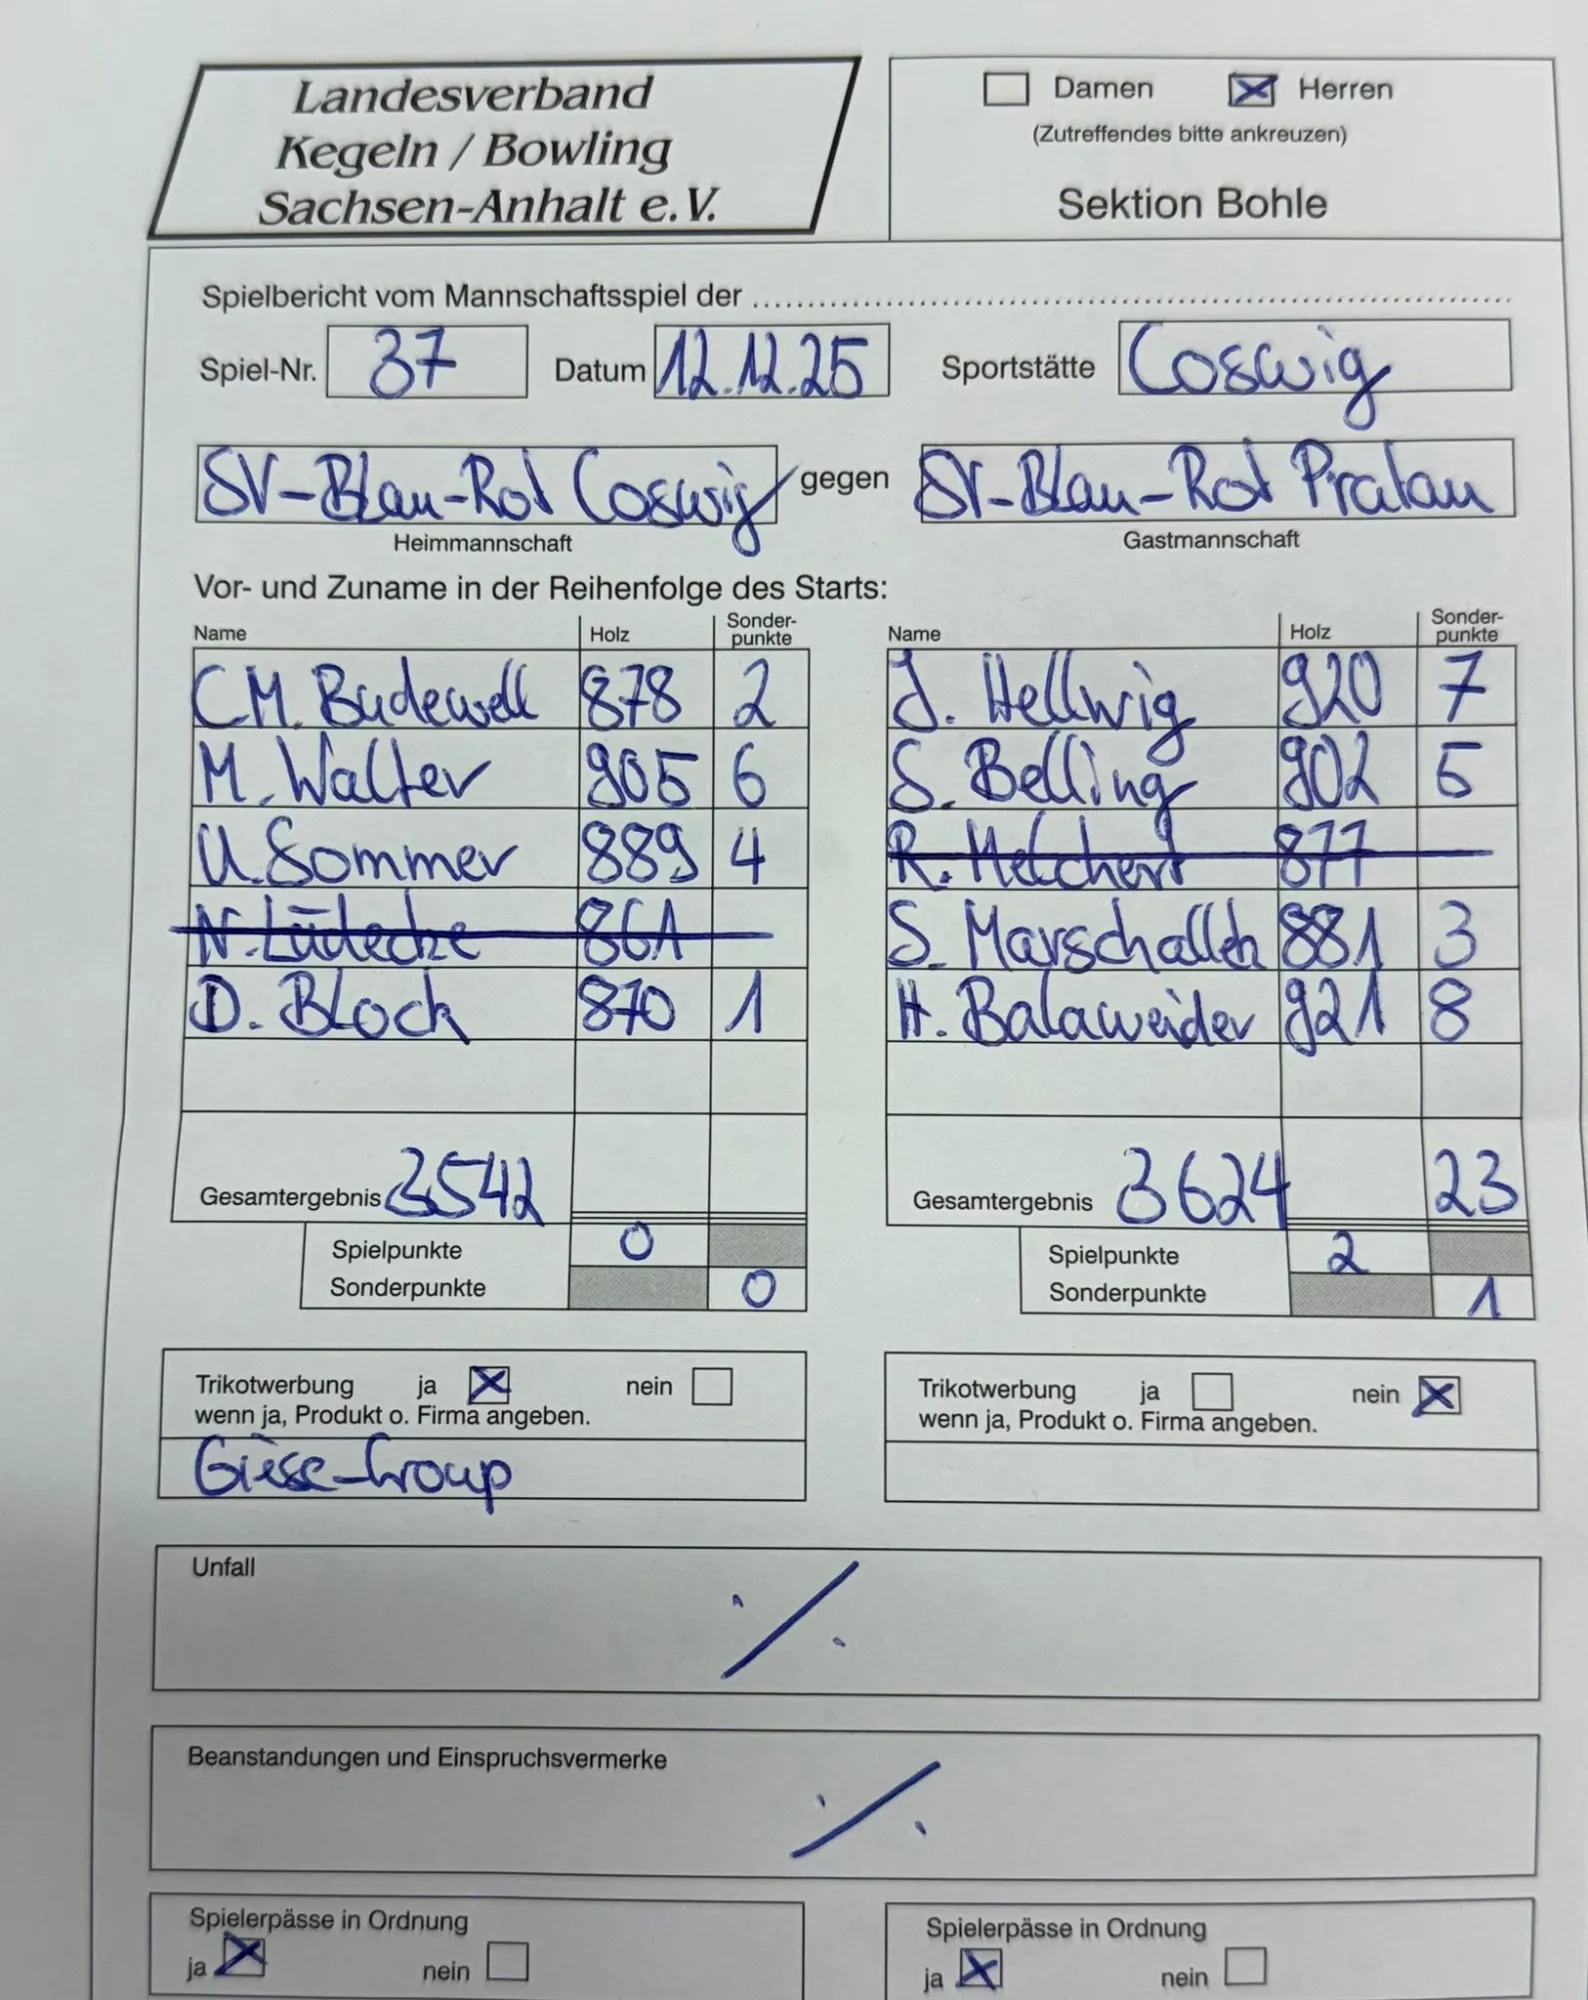 Landesverband
Kegeln / Bowling
Sachsen-Anhalt e.V.
Damen Herren
(Zutreffendes bitte ankreuzen)
Sektion Bohle
Spielbericht vom Mannschaftsspiel der
Spiel-Nr. 37 Datum 12.12.25 Sportstätte Coswig
SV-Blau-Rot Coswig gegen SV-Blau-Rot Pratau
Heimmannschaft Gastmannschaft
Vor- und Zuname in der Reihenfolge des Starts:
Name Holz Sonder-punkte Name Holz Sonder-punkte
CM. Budewell 878 2 J. Hellwig 920 7
M. Walter 905 6 S. Belling 902 5
U. Sommer 889 4 R. Melchert 877
N. Lüdecke 861 S. Marschallek 881 3
D. Block 870 1 H. Balaweider 921 8
Gesamtergebnis 3542 Gesamtergebnis 3624 23
Spielpunkte 0 Spielpunkte 2
Sonderpunkte 0 Sonderpunkte 1
Trikotwerbung ja nein Trikotwerbung ja nein
wenn ja, Produkt o. Firma angeben. wenn ja, Produkt o. Firma angeben.
Giese-Group
Unfall
Beanstandungen und Einspruchsvermerke
Spielerpässe in Ordnung Spielerpässe in Ordnung
ja nein ja nein